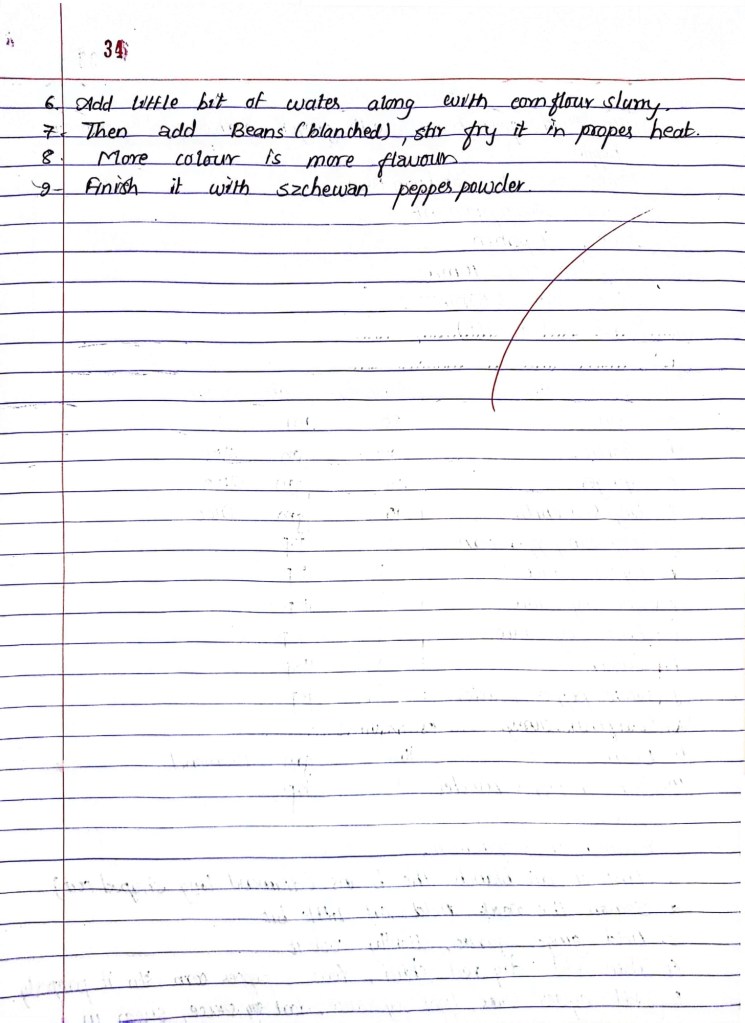 34
6. Add little bit of water along with cornflour slurry.
7- Then add Beans (blanched), stir fry it in proper heat.
8. More colour is more flavour
9- Finish it with szchewan pepper powder.